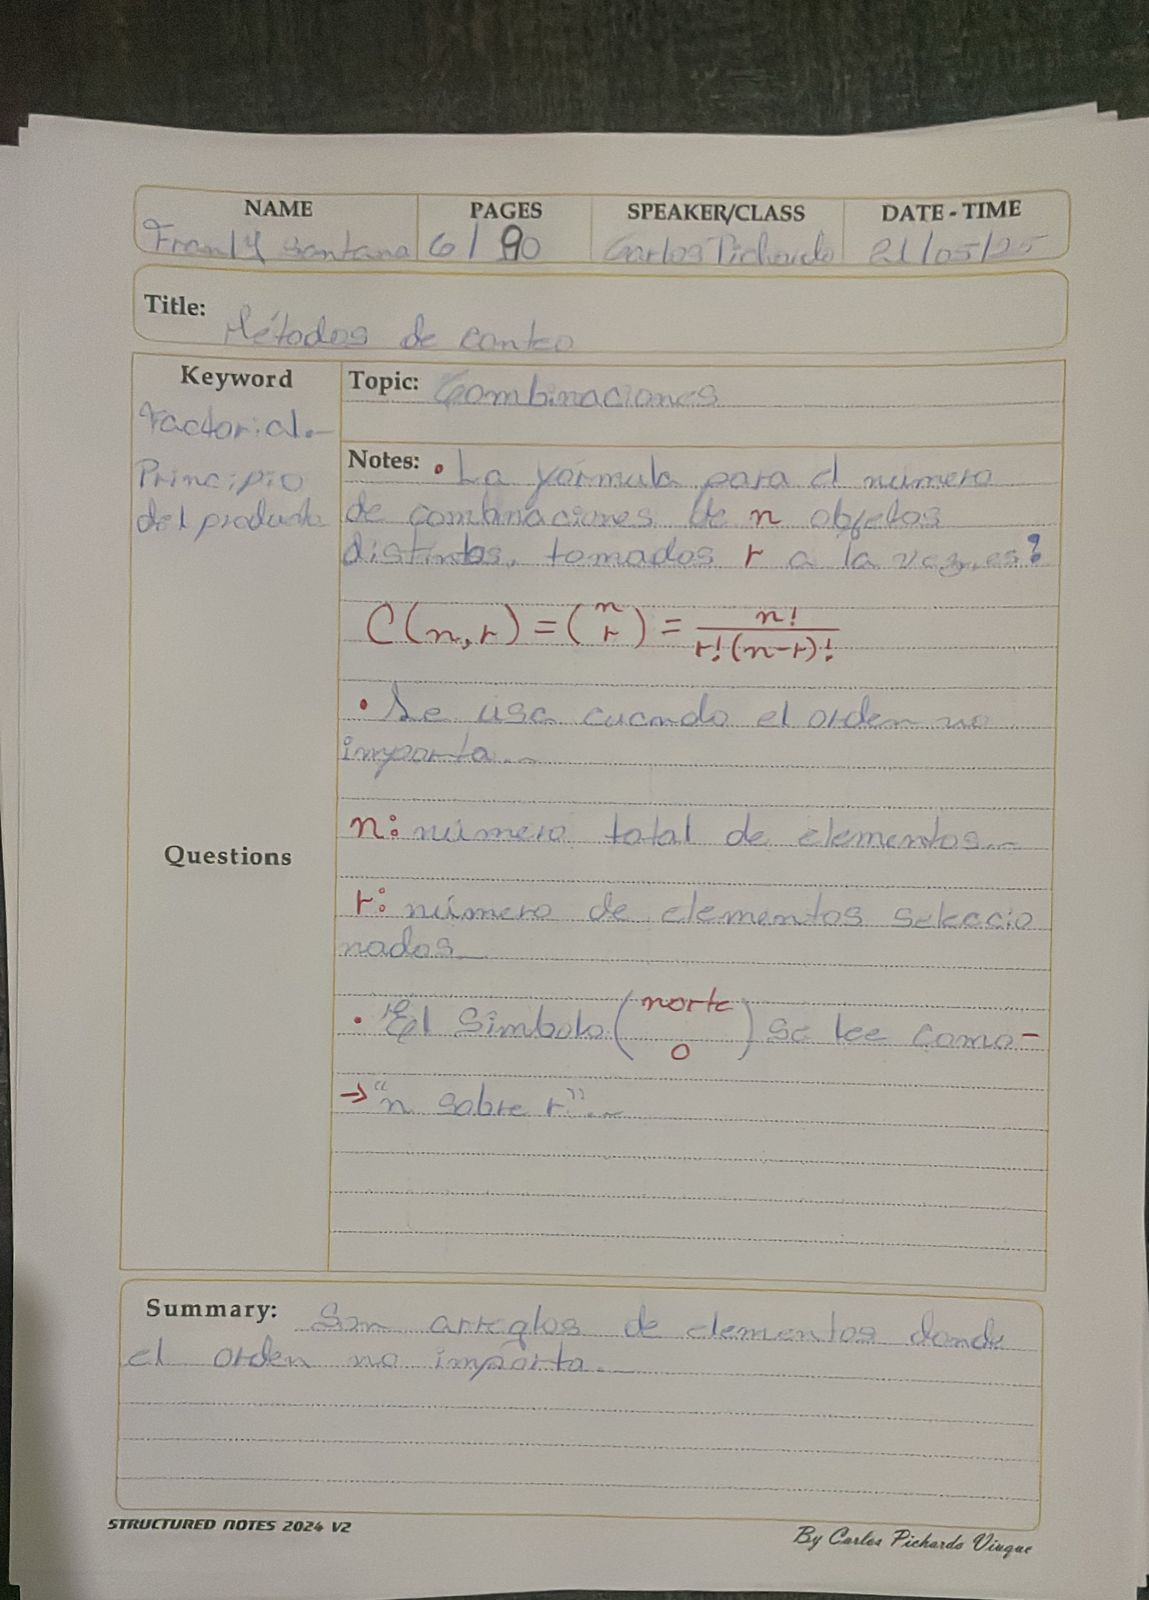 NAME PAGES SPEAKER/CLASS DATE - TIME
Franly Santana 6 / 90 Carlos Pichardo 21/05/25
Title: Métodos de conteo
Keyword
Factorial.-
Principio
del producto
Topic: Combinaciones
Notes: • La fórmula para el número
de combinaciones de n objetos
distintos, tomados r a la vez, es:
C(n,r) = (n r) = n! / r!(n-r)!
• Se usa cuando el orden no
importa.-
n: número total de elementos.-
r: número de elementos seleccio
nados
• El símbolo (norte o) se lee como-
→ "n sobre r".-
Questions
Summary: Son arreglos de elementos donde
el orden no importa.
STRUCTURED NOTES 2024 V2
By Carlos Pichardo Viuque